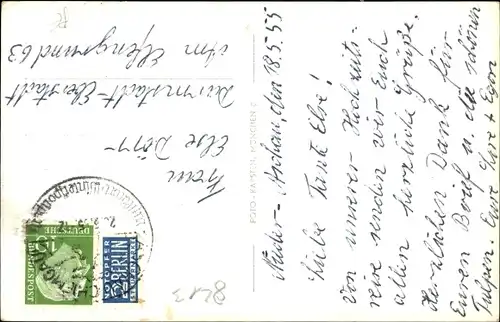 Nieder-Aschau, den 18.5.55
Liebe Tante Else!
Von unserer Hochzeits-
reise senden wir Euch
allen herzliche Grüße.
Herzlichen Dank für
Euren Brief u. die schönen
Tulpen. Eure + Egon
FOTO-KAISER, MÜNCHEN 2
Frau
Else Dörr
Darmstadt-Eberstadt
Am Elfengrund 63
DEUTSCHE
BUNDESPOST
10
NOTOPFER
2 BERLIN
STEUERMARKE
8213